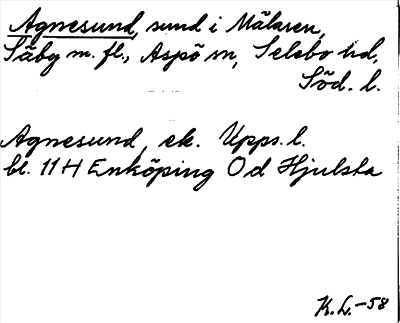 Agnesund, sund i Mälaren,
Säby m. fl., Aspö sn, Selebo hd,
Söd. l.
Agnesund, ek. Upps. l.
bl. 11 H Enköping 0 d Hjulsta
K. L. -58